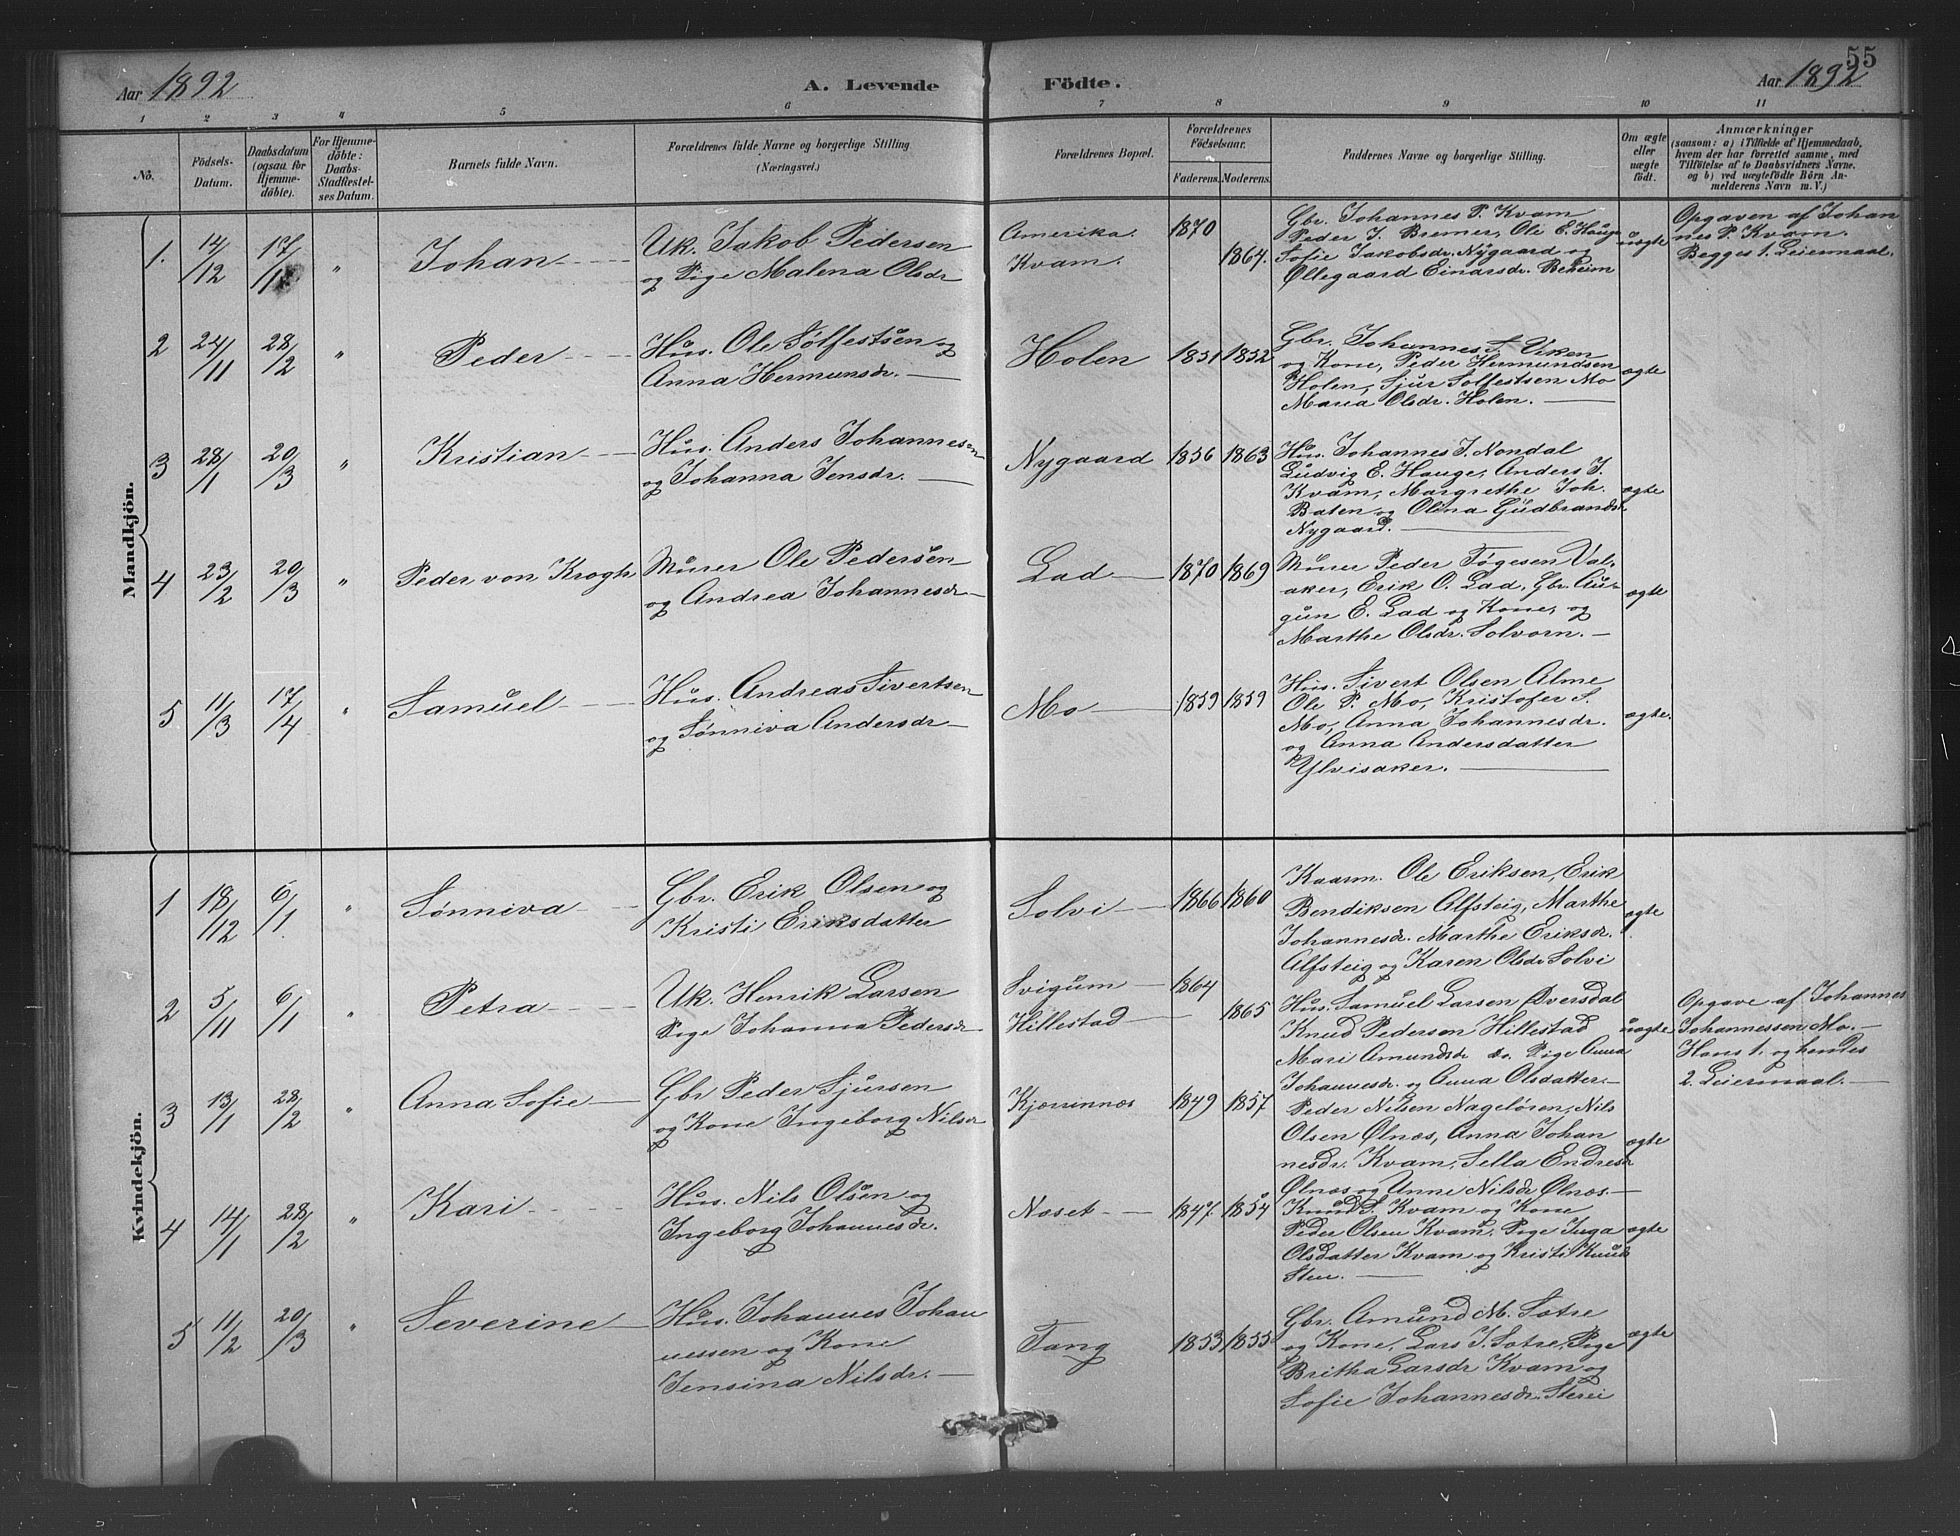 55
Aar 1892 A. Levende Födte. Aar 1892
1 2 3 4 5 6 7 8 9 10 11
No.
Födsels-Datum.
Daabsdatum (ogsaa for Hjemmedöbte).
For Hjemmedöbte: Daabs-Stadfæstelses Datum.
Barnets fulde Navn.
Forældrenes fulde Navne og borgerlige Stilling
(Næringsvei.)
Forældrenes Bopæl.
Forældrenes Födselsaar.
Faderens. Moderens.
Faddernes Navne og borgerlige Stilling.
Om ægte eller uægte födt.
Anmærkninger
(saasom: a) i Tilfælde af Hjemmedaab,
hvem der har forrettet samme, med
Tilföielse af to Daabsvidners Navne,
og b) ved uægtefödte Börn An-
melderens Navn m. V.)
Mandkjön.
1. 14/12 17/1 " Johan
Uk. Jakob Pedersen
og Pige Malena Olsdr
Amerika. 1870
Kvam. 1864.
Gbr. Johannes P. Kvam
Peder J. Bremer, Ole E. Hauge
Sofie Jakobsdr. Nygaard og
Øllegaard Einarsdr. Beheim
uægte
Opgaven af Johan
nes P. Kvam.
Begges 1. Leiermaal.
2 24/11 28/2 " Peder
Hus. Ole Sølfestsen og
Anna Hermunsdr.
Holen 1851 1852
Gbr. Johannes Viken
og Kone, Peder Hermundsen
Holen, Sjur Solfestsen Mo
Maria Olsdr. Holen.
ægte
3 28/1 20/3 " Kristian
Hus. Anders Johannesen
og Johanna Jensdr.
Nygaard 1856 1863
Hus. Johannes J. Nondal
Ludvig E. Hauge, Anders J.
Kvam, Margrethe Joh.
Baten og Olina Gudbrandsd.
Nygaard.
ægte
4 23/2 20/3 " Peder von Krogh
Murer Ole Pedersen
og Andrea Johannesdr
Lad 1870 1869
Murer Peder Tøgesen Val-
aker, Erik O. Lad, Gbr. Au-
gun E. Lad og Kone, og
Marthe Olsdr. Solvorn.
ægte
5 11/3 17/4 " Samuel
Hus. Andreas Sivertsen
og Sønniva Andersdr
Mo 1859 1859
Hus. Sivert Olsen Alme
Ole P. Mo, Kristofer S.
Mo, Anna Johannesdr.
og Anna Andersdatter
Ylvisaker.
ægte.
Kvindekjön.
1 18/12 6/1 " Sønniva
Gbr. Erik Olsen og
Kristi Eriksdatter
Solvi 1866 1860
Kaarm. Ole Eriksen, Erik
Bendiksen Alfsteig, Marthe
Johannesdr. Marthe Eriksdr.
Alfsteig og Karen Olsdr Solvi
ægte
2 5/11 6/1 " Petra
Uk. Henrik Larsen
Pige Johanna Pedersdr
Svigum 1864
Hillestad 1865
Hus. Samuel Larsen Dversdal
Knud Pedersen Hillestad
Mari Amundsdr do. Pige Anna
Johannesdr. og Anna Olsdatter.
uægte
Opgave af Johannes
Johannessen Mo.
Hans 1. og hendes
2. Leiermaal.
3 13/1 28/2 " Anna Sofie
Gbr Peder Sjursen
og Kone Ingeborg Nilsdr
Kjærrinnæs 1849 1857
Peder Nilsen Nageløren, Nils
Olsen Ølnæs, Anna Johan
nesdr. Kvam, Sella Endresdr
Ølnæs og Anne Nilsdr Ølnæs.
ægte
4 14/1 28/2 " Kari
Hus. Nils Olsen og
Ingeborg Johannesdr.
Næset 1847. 1854
Knud S. Kvam og Kone
Peder Olsen Kvam. Pige Inga
Olsdatter Kvam og Kristi Knuds
Steen.
ægte
5 11/2 20/3 " Severine
Hus. Johannes Johan
nessen og Kone
Jensina Nilsdr.
Tang 1853 1855
Gbr. Amund M. Sotre
og Kone, Lars J. Sotre, Pige
Britha Larsdr Kvam og
Sofie Johannesdr.
ægte